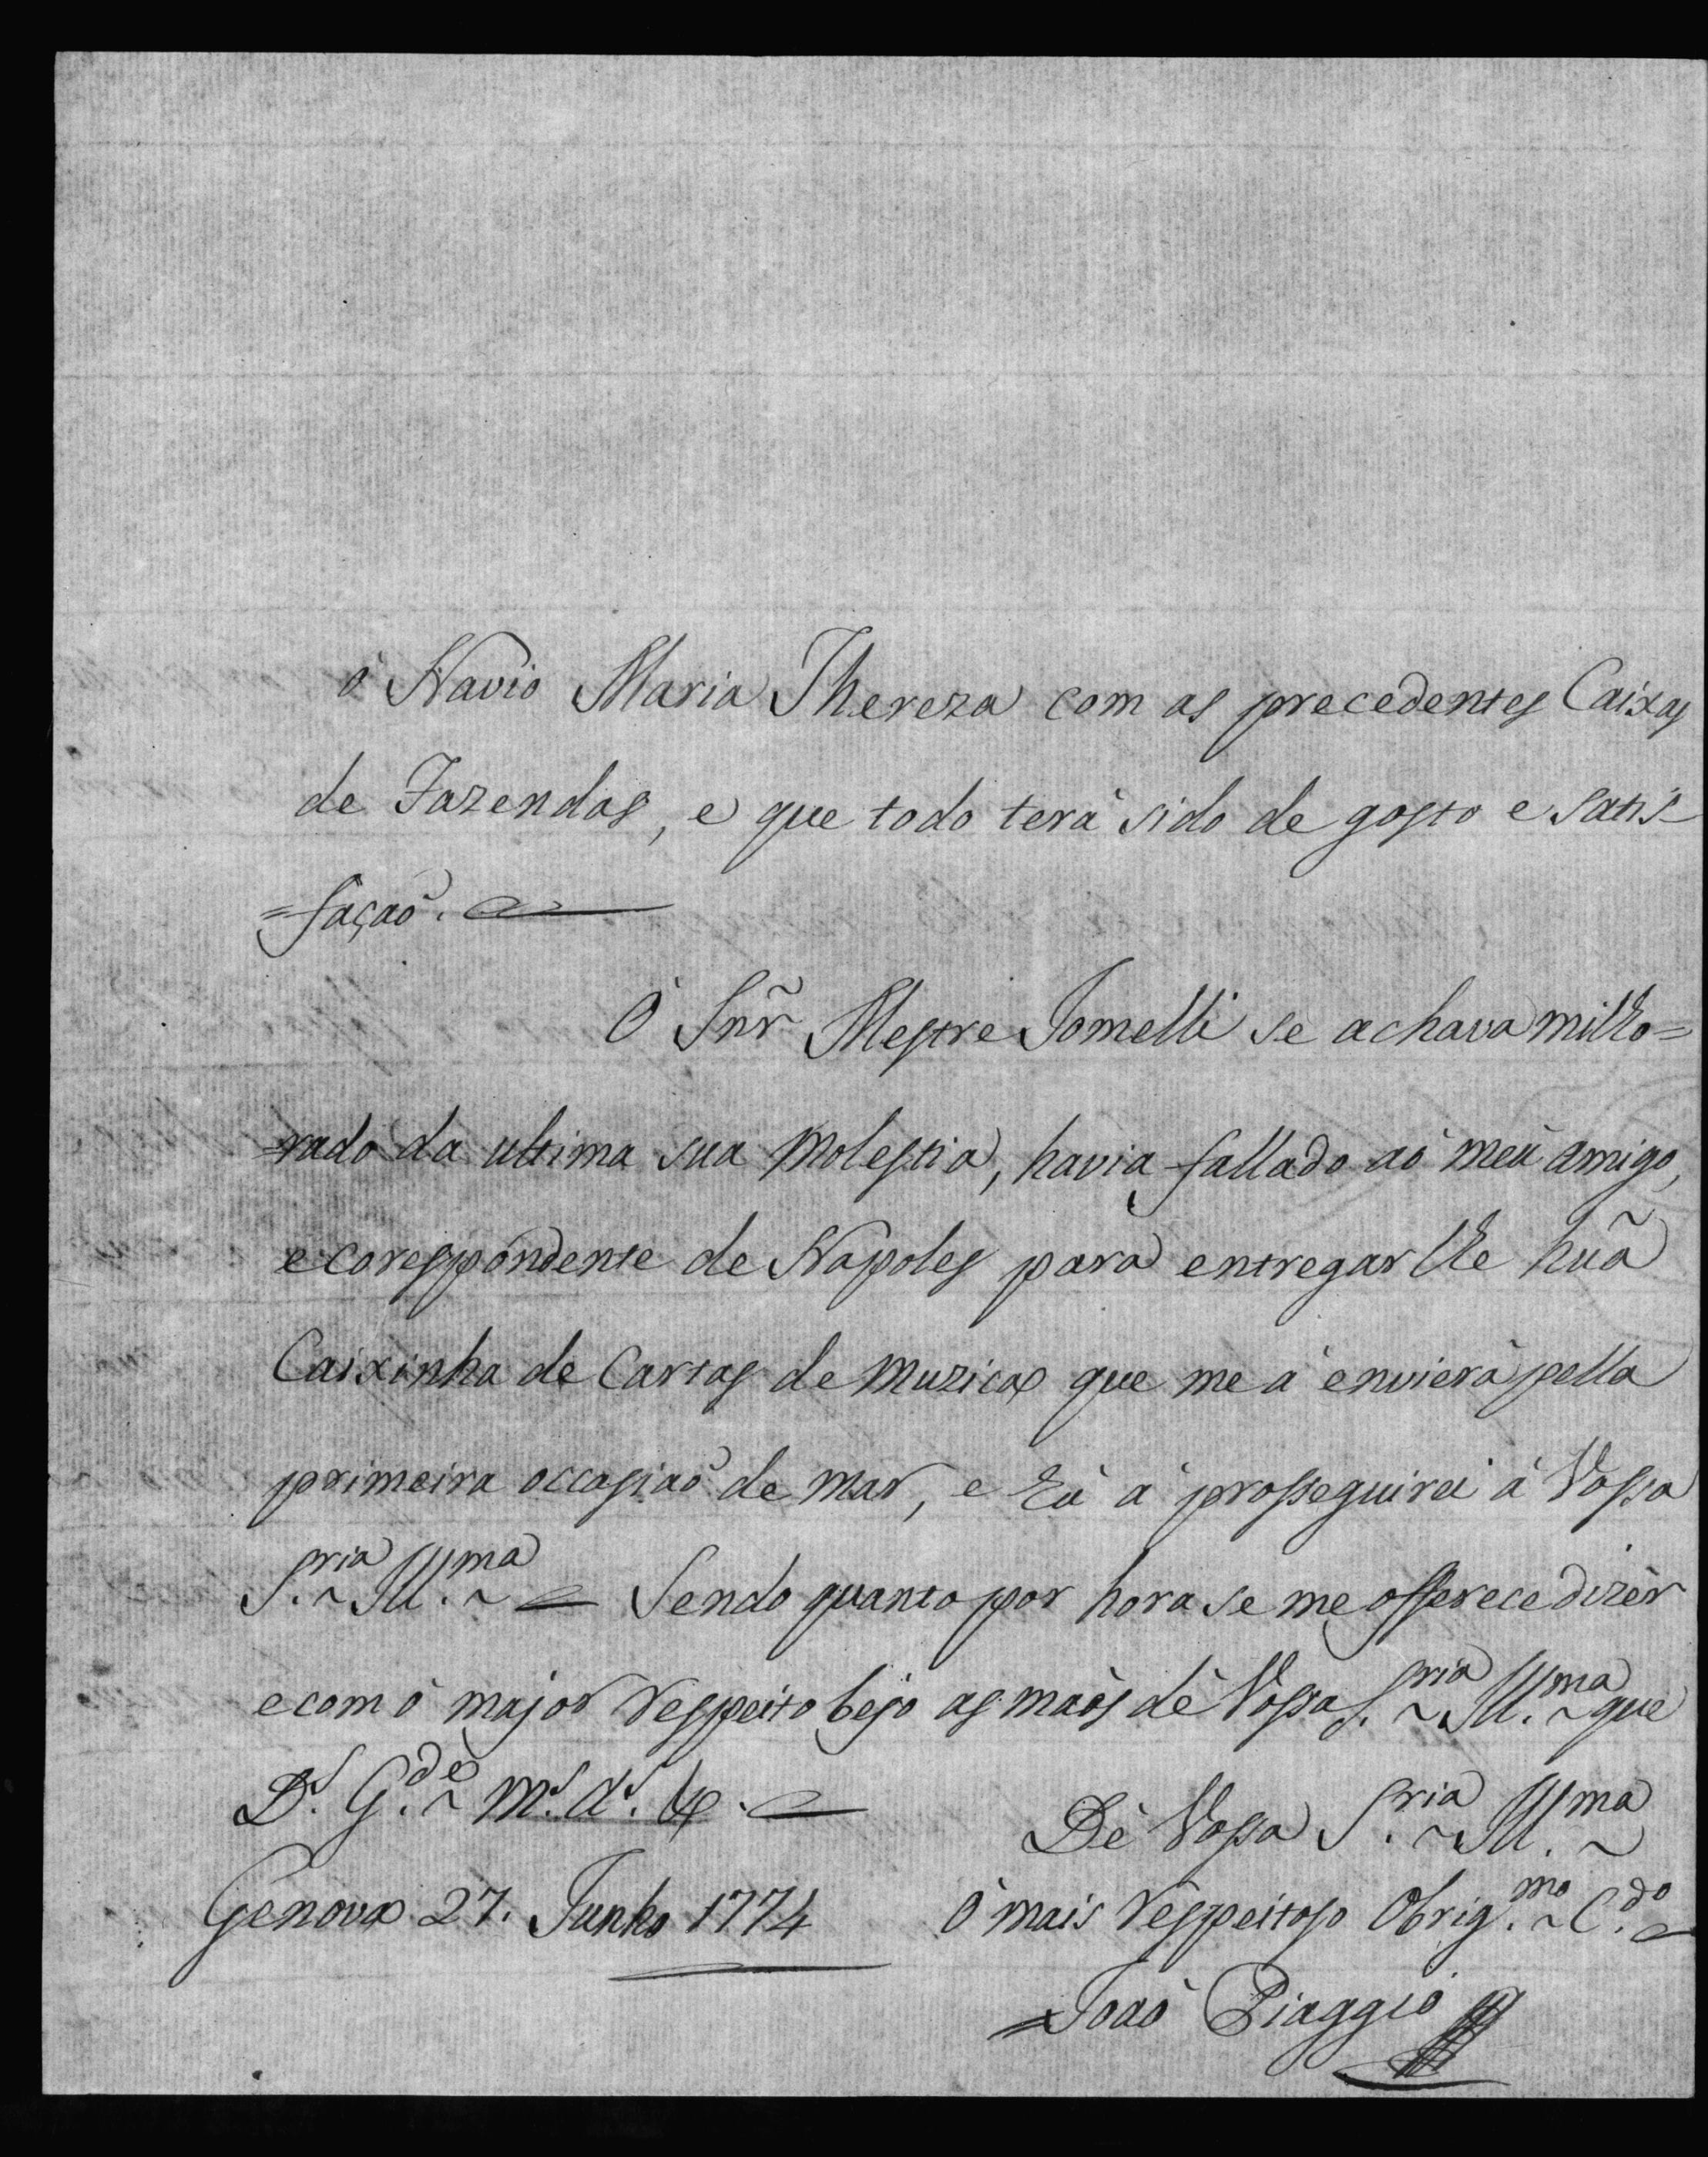 ò Navio Maria Thereza com as precedentes Caixas
de Fazendas, e que todo terà sido de gosto e satis-
=façaõ.
O Snr̃ Mestre Jomelli se achava milho=
=rado da ultima sua Molestia, havia fallado aò meù amigo,
e corespondente de Napoles para entregarlhe huã
Caixinha de Cartas de Muzica que me à envierà pella
primeira occasiaõ de mar, e Eù à prosseguirei à Vossa
S.ria Ill.ma Sendo quanto por hora se me offerece dizèr
e com ò major respeito bejo as maòs dè Vossa S.ria Ill.ma que
D.s G.de m.s a.s
Dè Vossa S.ria Ill.ma
Genova 27. Junho 1774
O mais respeitoso Obrig.mo C.do
=Joaò Piaggio